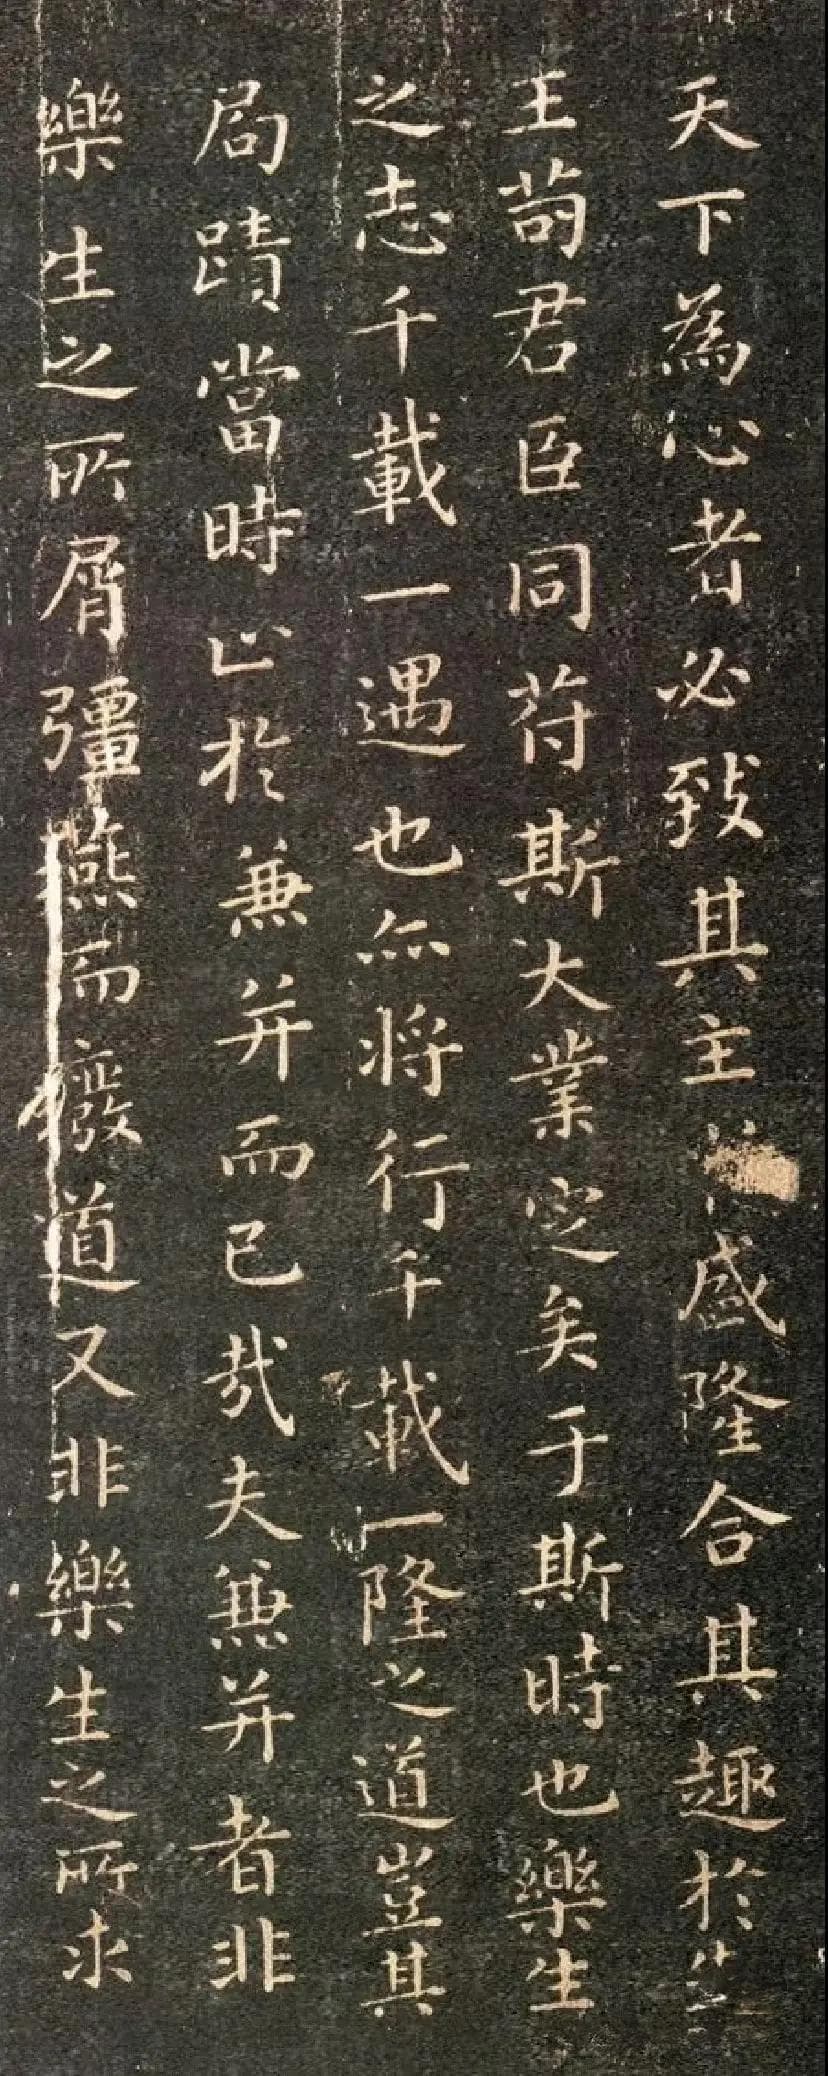 天下為心者必致其主盛隆合其趣於
王苟君臣同苻斯大業定矣于斯時也樂生
之志千載一遇也亦將行千載一隆之道豈其
局蹟當時止於兼并而已哉夫兼并者非
樂生之所屑彊燕而廢道又非樂生之所求